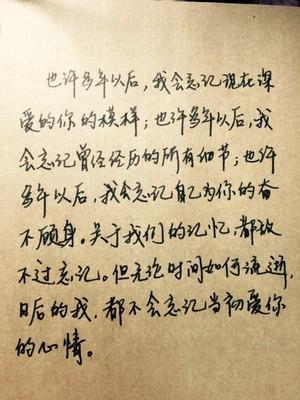 也许多年以后，我会忘记现在深
爱的你的模样；也许多年以后，我
会忘记曾经经历的所有细节；也许
多年以后，我会忘记自己为你的奋
不顾身。关于我们的记忆，都敌
不过忘记。但无论时间如何流逝，
日后的我，都不会忘记当初爱你
的心情。